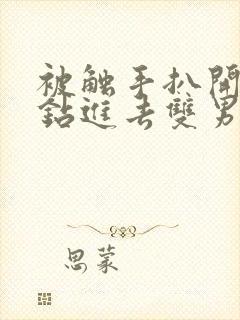 被触手扒開
鉆進去雙男
思蒙